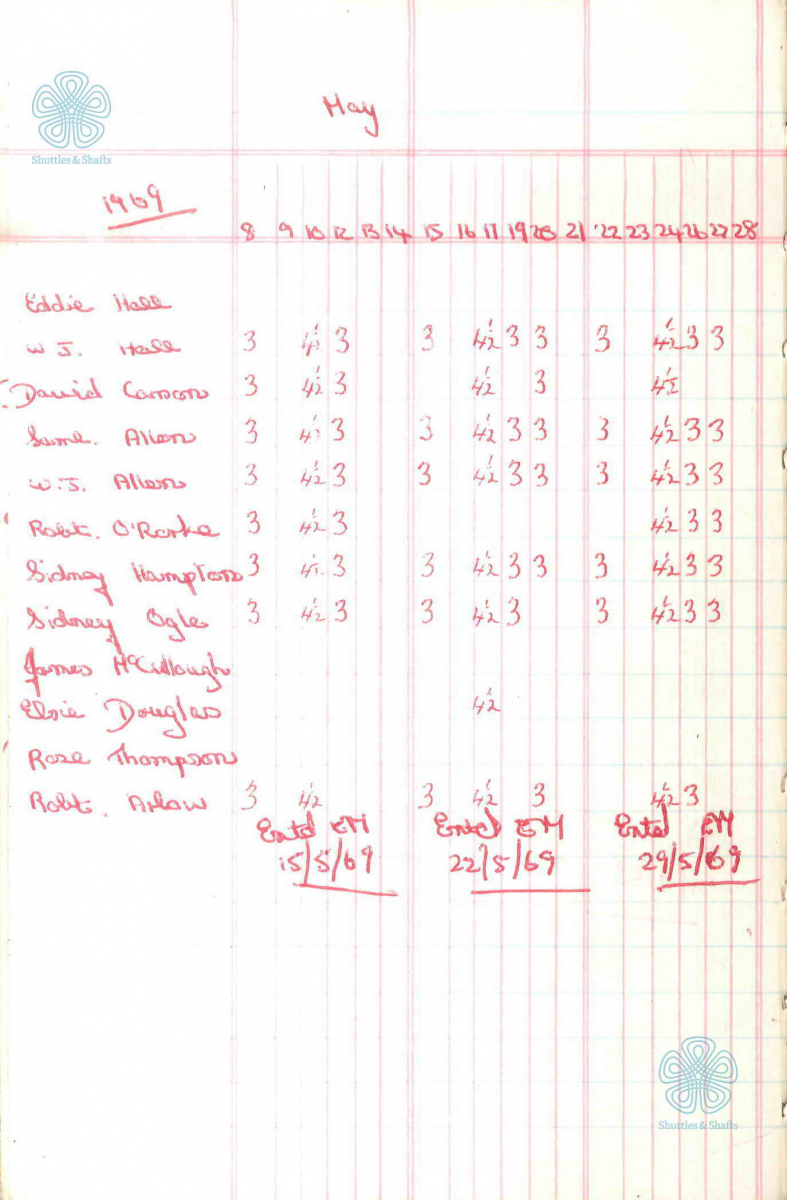 Shuttles & Shafts
May
1969
8 9 10 12 13 14 15 16 17 19 20 21 22 23 24 26 27 28
Eddie Hall
W J. Hall 3 4½ 3 3 4½ 3 3 3 4½ 3 3
David Carson 3 4½ 3 4½ 3 4½
Saml. Allen 3 4½ 3 3 4½ 3 3 3 4½ 3 3
W.J. Allen 3 4½ 3 3 4½ 3 3 3 4½ 3 3
Robt. O'Rorke 3 4½ 3 4½ 3 3
Sidney Hampton 3 4½ 3 3 4½ 3 3 3 4½ 3 3
Sidney Ogle 3 4½ 3 3 4½ 3 3 4½ 3 3
James McCullough
Elsie Douglas 4½
Rose Thompson
Robt. Arlow 3 4½ 3 4½ 3 4½ 3
Entd EM Entd EM Entd EM
15/5/69 22/5/69 29/5/69
Shuttles & Shafts